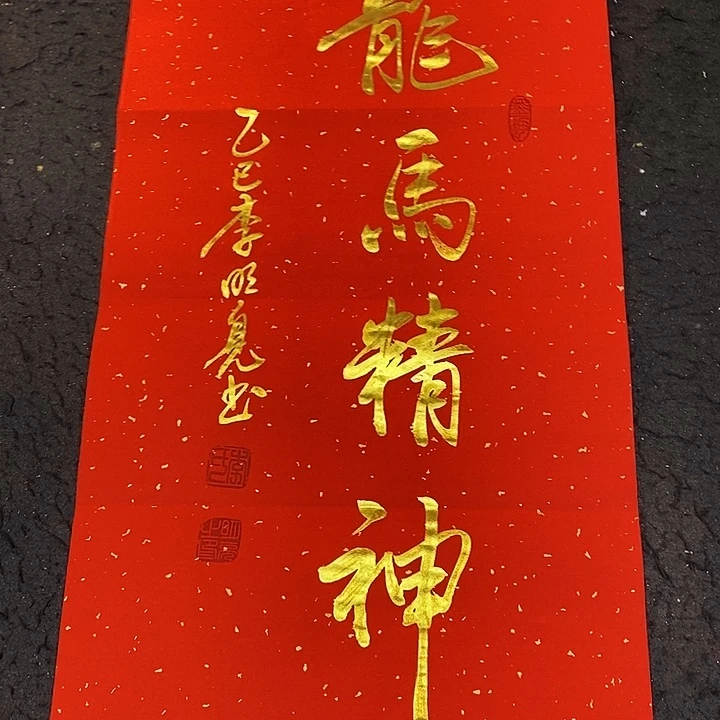 龍馬精神
乙巳李明亮书